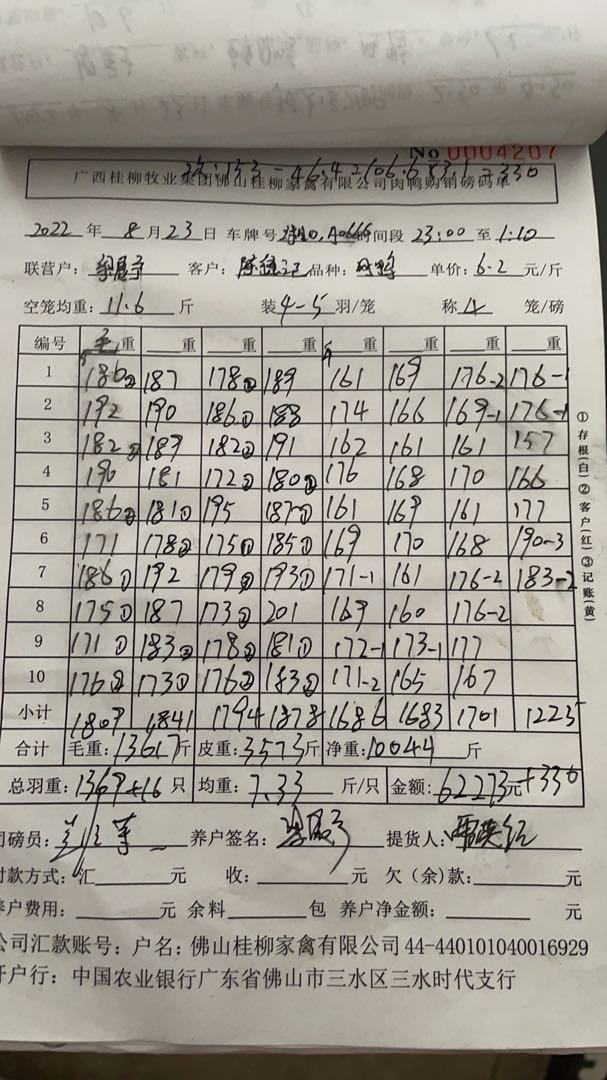 No 0004207
广西桂柳牧业集团佛山桂柳家禽有限公司肉鸭购销磅码单
2022 年 8 月 23 日 车牌号 时间段 23:00 至 1:10
联营户: 客户: 品种: 肉鸭 单价: 6.2 元/斤
空笼均重: 11.6 斤 装 4-5 羽/笼 称 4 笼/磅
编号 毛重 重 重 重 重 重 重 重
1 186② 187 178② 189 161 169 176-2 176-1
2 192 190 186① 188 174 166 169-1 176-1
3 182② 189 182② 191 162 161 161 157
4 190 181 172② 180② 176 168 170 166
5 186② 181① 195 187① 161 169 161 177
6 171 178② 175① 185① 169 170 168 190-3
7 186① 192 179② 193① 171-1 161 176-2 183-2
8 175① 187 173② 201 169 160 176-2
9 171① 183② 178② 181① 172-1 173-1 177
10 176② 173① 176② 183② 171-2 165 167
小计 1809 1841 1794 1878 1686 1683 1701 1225
合计 毛重: 13617 斤 皮重: 3573 斤 净重: 10044 斤
总羽重: 1369+16 只 均重: 7.33 斤/只 金额: 62273元+330
司磅员: 养户签名: 提货人:
付款方式: 汇 元 收: 元 欠(余)款: 元
养户费用: 元 余料 包 养户净金额: 元
公司汇款账号: 户名: 佛山桂柳家禽有限公司 44-440101040016929
开户行: 中国农业银行广东省佛山市三水区三水时代支行
①存根(白)②客户(红)③记账(黄)